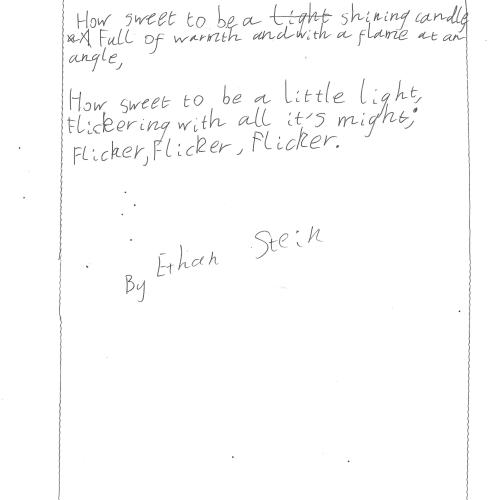 How sweet to be a Light shining candle
Full of warmth and with a flame at an
angle,
How sweet to be a little light,
Flickering with all it's might;
Flicker, Flicker, Flicker.
By Ethan Stein